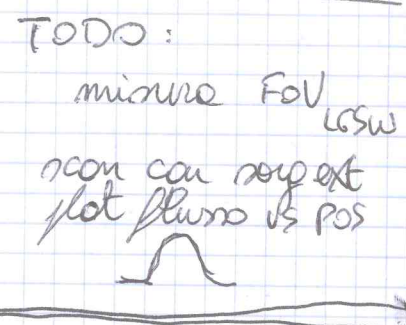 TODO:
misura FOV LGSW
scan con sorg ext
plot flusso vs pos